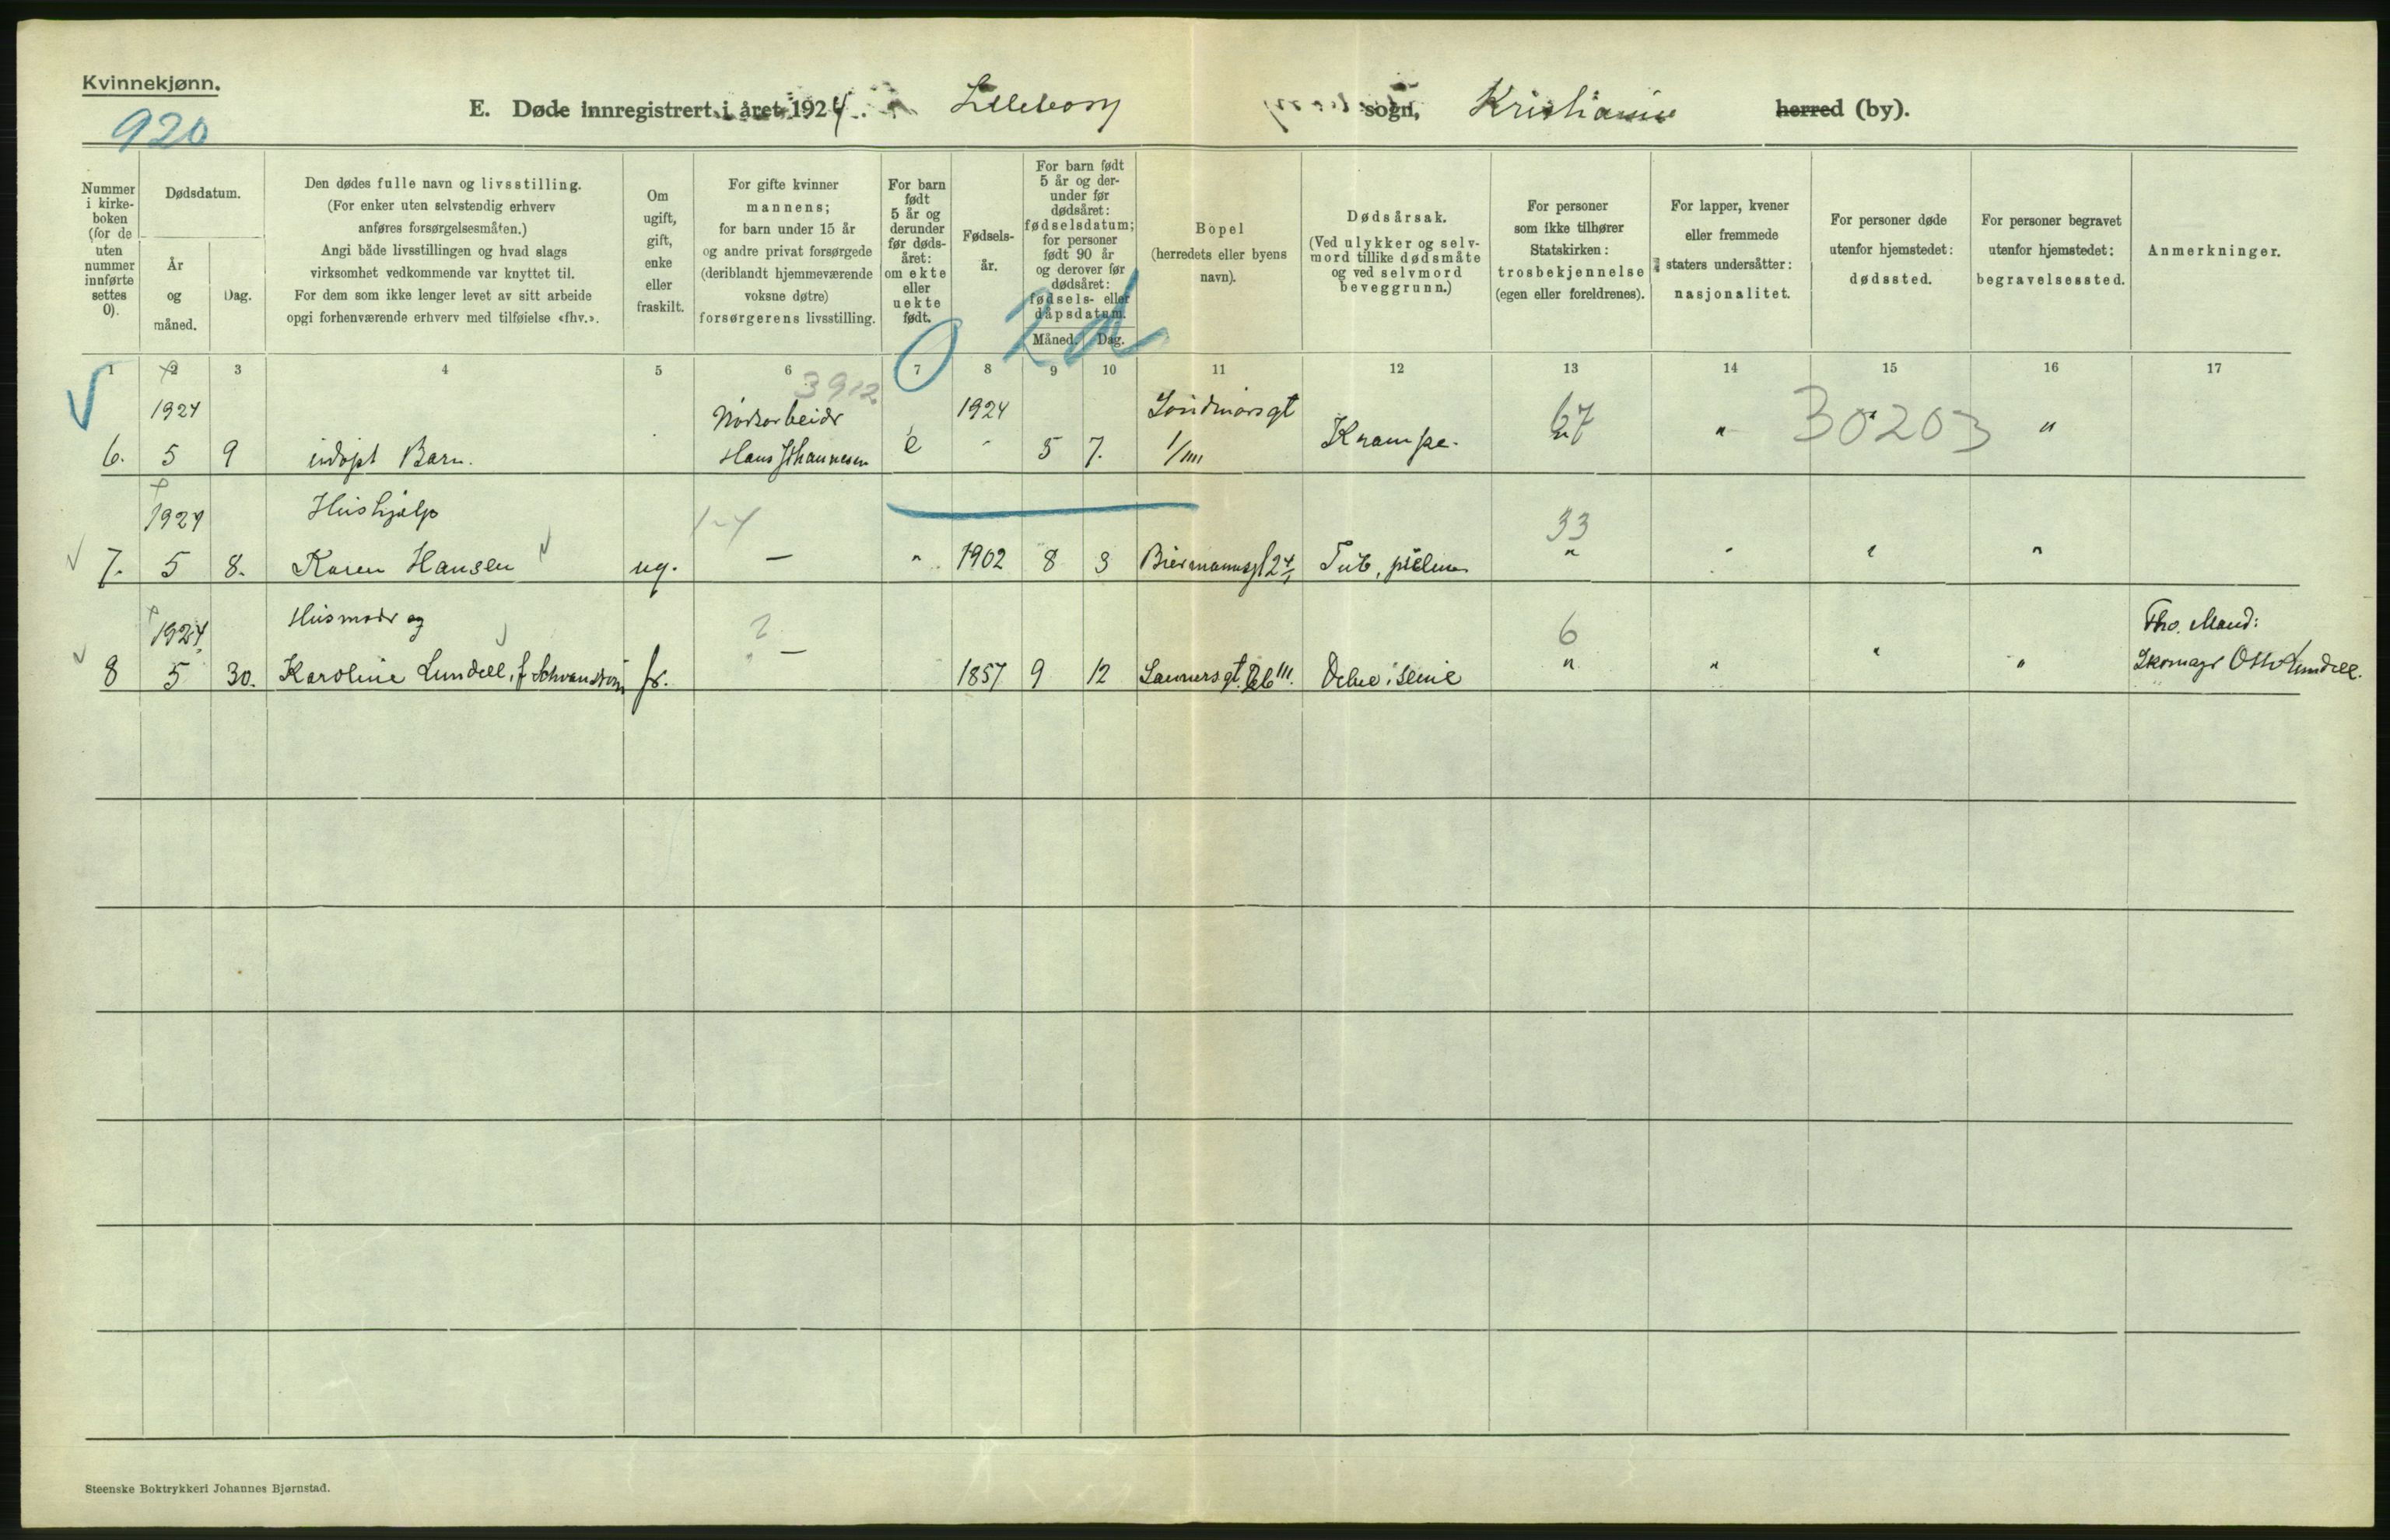 Kvinnekjønn.
920
E. Døde innregistrert i året 1924. Lilleborg sogn, Kristiania herred (by).
Nummer i kirkeboken (for de uten nummer innførte settes 0).
Dødsdatum.
År og måned.
Dag.
Den dødes fulle navn og livsstilling.
(For enker uten selvstendig erhverv
anføres forsørgelsesmåten.)
Angi både livsstillingen og hvad slags
virksomhet vedkommende var knyttet til.
For dem som ikke lenger levet av sitt arbeide
opgi forhenværende erhverv med tilføielse «fhv.».
Om ugift, gift, enke eller fraskilt.
For gifte kvinner
mannens;
for barn under 15 år
og andre privat forsørgede
(deriblandt hjemmeværende
voksne døtre)
forsørgerens livsstilling.
For barn født 5 år og derunder før dødsåret: om ekte eller uekte født.
Fødselsår.
For barn født 5 år og derunder før dødsåret: fødselsdatum; for personer født 90 år og derover før dødsåret: fødsels- eller dåpsdatum.
Måned. Dag.
Bopel
(herredets eller byens
navn).
Dødsårsak.
(Ved ulykker og selvmord tillike dødsmåte og ved selvmord beveggrunn.)
For personer
som ikke tilhører
Statskirken:
trosbekjennelse
(egen eller foreldrenes).
For lapper, kvener
eller fremmede
staters undersåtter:
nasjonalitet.
For personer døde
utenfor hjemstedet:
dødssted.
For personer begravet
utenfor hjemstedet:
begravelsessted.
Anmerkninger.
0 2d
1 2 3 4 5 6 7 8 9 10 11 12 13 14 15 16 17
3912
1924 1924 67 30203
6. 5 9 Barn. Hans Johannesen e 5 7. 1/III Krampe. " " "
1924 Hushjelp 1-4 33
7. 5 8. Karen Hansen ug. — " 1902 8 3 Biermannsgt 24/I Tub. " " " "
1924 Husmoder og ? 6
8 5 30. Karoline Lundell, f. fr. — 1857 9 12 " " " "
Lundell.
Steenske Boktrykkeri Johannes Bjørnstad.